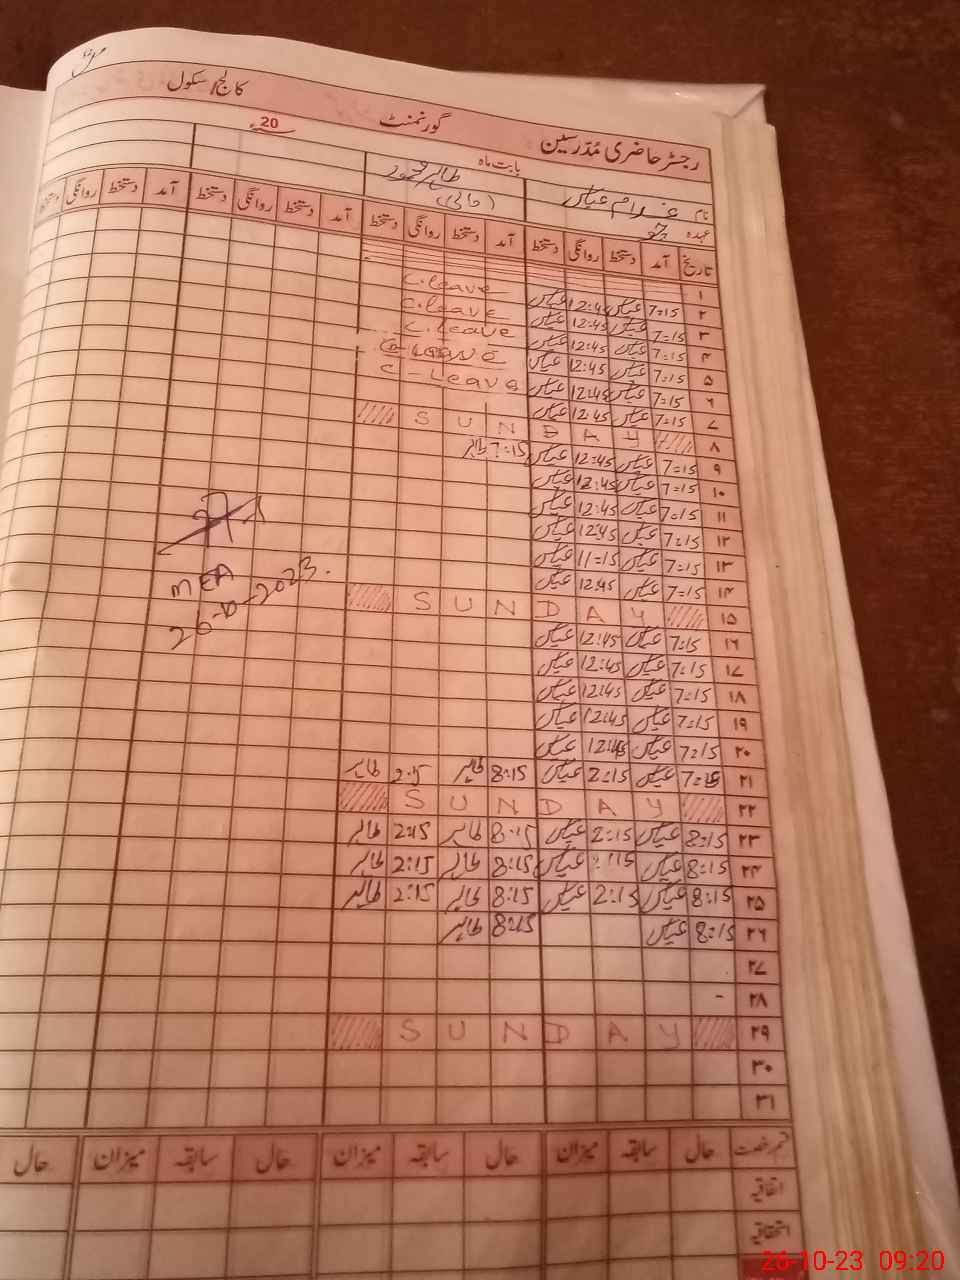 کالج/سکول
گورنمنٹ
رجسٹر حاضری مُدرسین
20ء
بابت ماہ
نام غلام عباس
طاہر
عہدہ
(مالی)
تاریخ آمد دستخط روانگی دستخط آمد دستخط روانگی دستخط آمد دستخط روانگی دستخط آمد دستخط روانگی دستخط
۱
۲ 7=15 عباس 12:45 عباس C.leave
۳ 7=15 عباس 12:45 عباس C.leave
۴ 7=15 عباس 12:45 عباس C.leave
۵ 7=15 عباس 12:45 عباس C-Leave
۶ 7=15 عباس 12:45 عباس C-Leave
۷ 7=15 عباس 12:45 عباس
۸ SUNDAY
۹ 7=15 عباس 12:45 عباس 7:15 طاہر
۱۰ 7=15 عباس 12:45 عباس
۱۱ 7=15 عباس 12:45 عباس
۱۲ 7=15 عباس 12:45 عباس
۱۳ 7=15 عباس 11-15 عباس
۱۴ 7=15 عباس 12:45 عباس
۱۵ SUNDAY
۱۶ 7:15 عباس 12:45 عباس
۱۷ 7=15 عباس 12:45 عباس
۱۸ 7=15 عباس 12:45 عباس
۱۹ 7=15 عباس 12:45 عباس
۲۰ 7=15 عباس 12:45 عباس
۲۱ 7=15 عباس 2:15 عباس 8:15 طاہر 2:15 طاہر
۲۲ SUNDAY
۲۳ 8:15 عباس 2:15 عباس 8:15 طاہر 2:15 طاہر
۲۴ 8:15 عباس عباس 8:15 طاہر 2:15 طاہر
۲۵ 8:15 عباس 2:15 عباس 8:15 طاہر 2:15 طاہر
۲۶ 8:15 عباس 8:15 طاہر
۲۷
۲۸ -
۲۹ SUNDAY
۳۰
۳۱
MEA
26-10-2023.
قسم رخصت حال سابقہ میزان حال سابقہ میزان حال سابقہ میزان حال
اتفاقیہ
استحقاقیہ
26-10-23 09:20